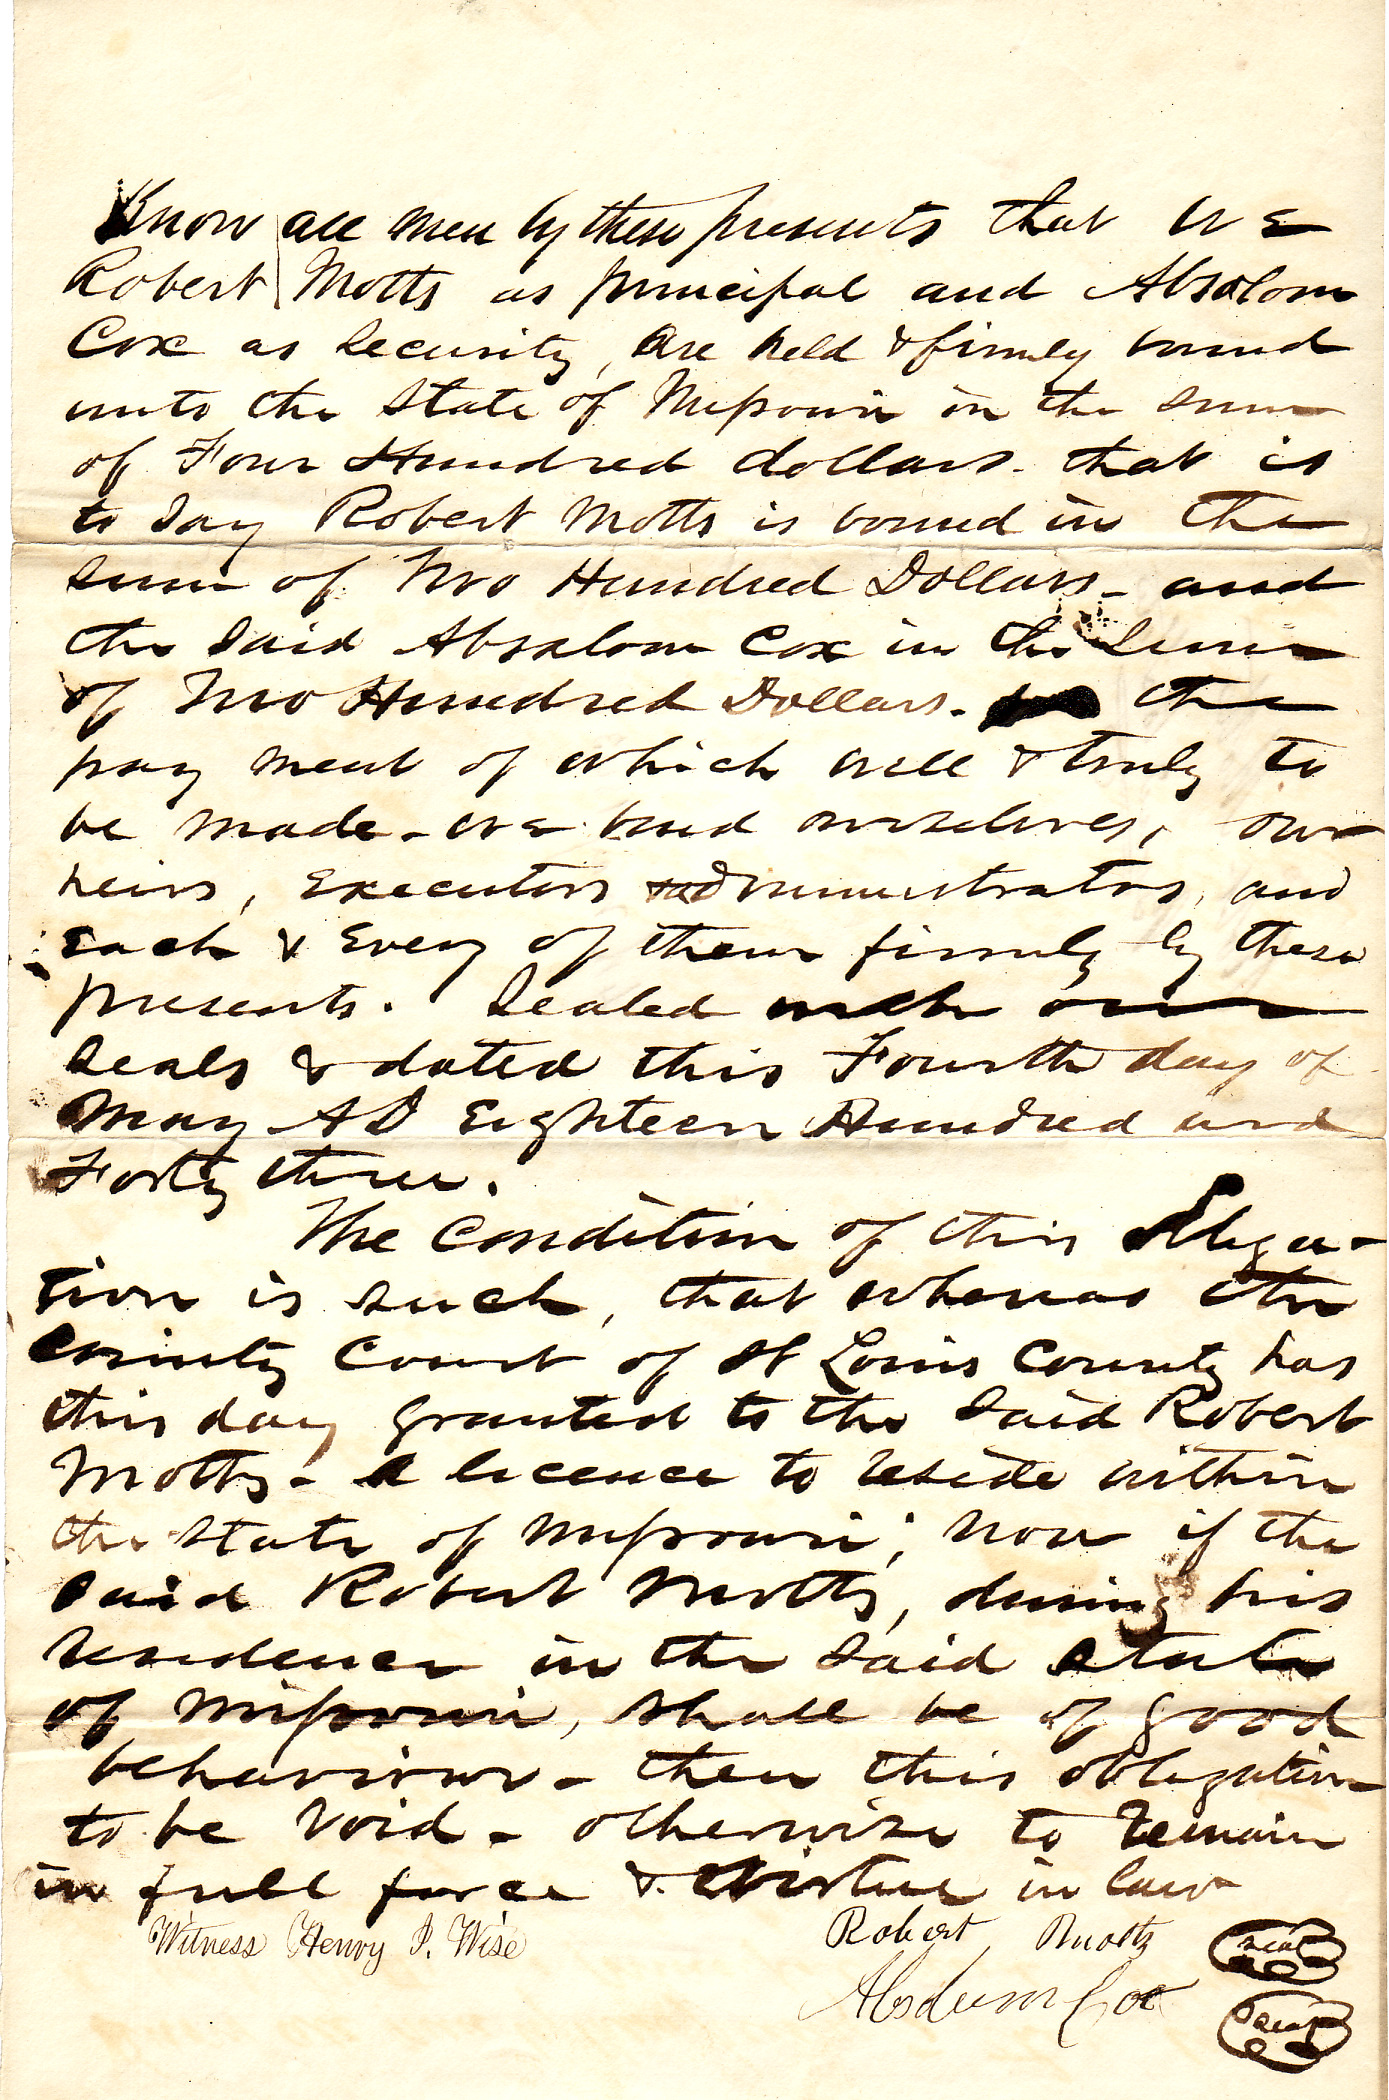 Know all men by these presents that we
Robert Motts as principal and Absolom
Cox as Security, are held & firmly bound
unto the State of Missouri in the sum
of Four Hundred dollars. that is
to Say Robert Motts is bound in the
sum of Two Hundred Dollars - and
the Said Absalom Cox in the Sum
of Two Hundred Dollars. the
pay ment of which well & truly to
be made - we bind ourselves, our
heirs, Executors administrators, and
Each & Every of them firmly by these
presents. Sealed with our
Seals & dated this Fourth day of
May AD Eighteen Hundred and
Forty three.
The Condition of this Obliga-
tion is such, that whereas the
County Court of St Louis County has
this day granted to the Said Robert
Motts - a licence to reside within
the State of Missouri; now if the
said Robert Motts, during his
residence in the Said State
of Missouri, shall be of good
behaviour - then this obligation
to be Void - otherwise to remain
in full force & virtue in law
Witness Henry I. Wise
Robert Muotts seal
Absolum Cox seal